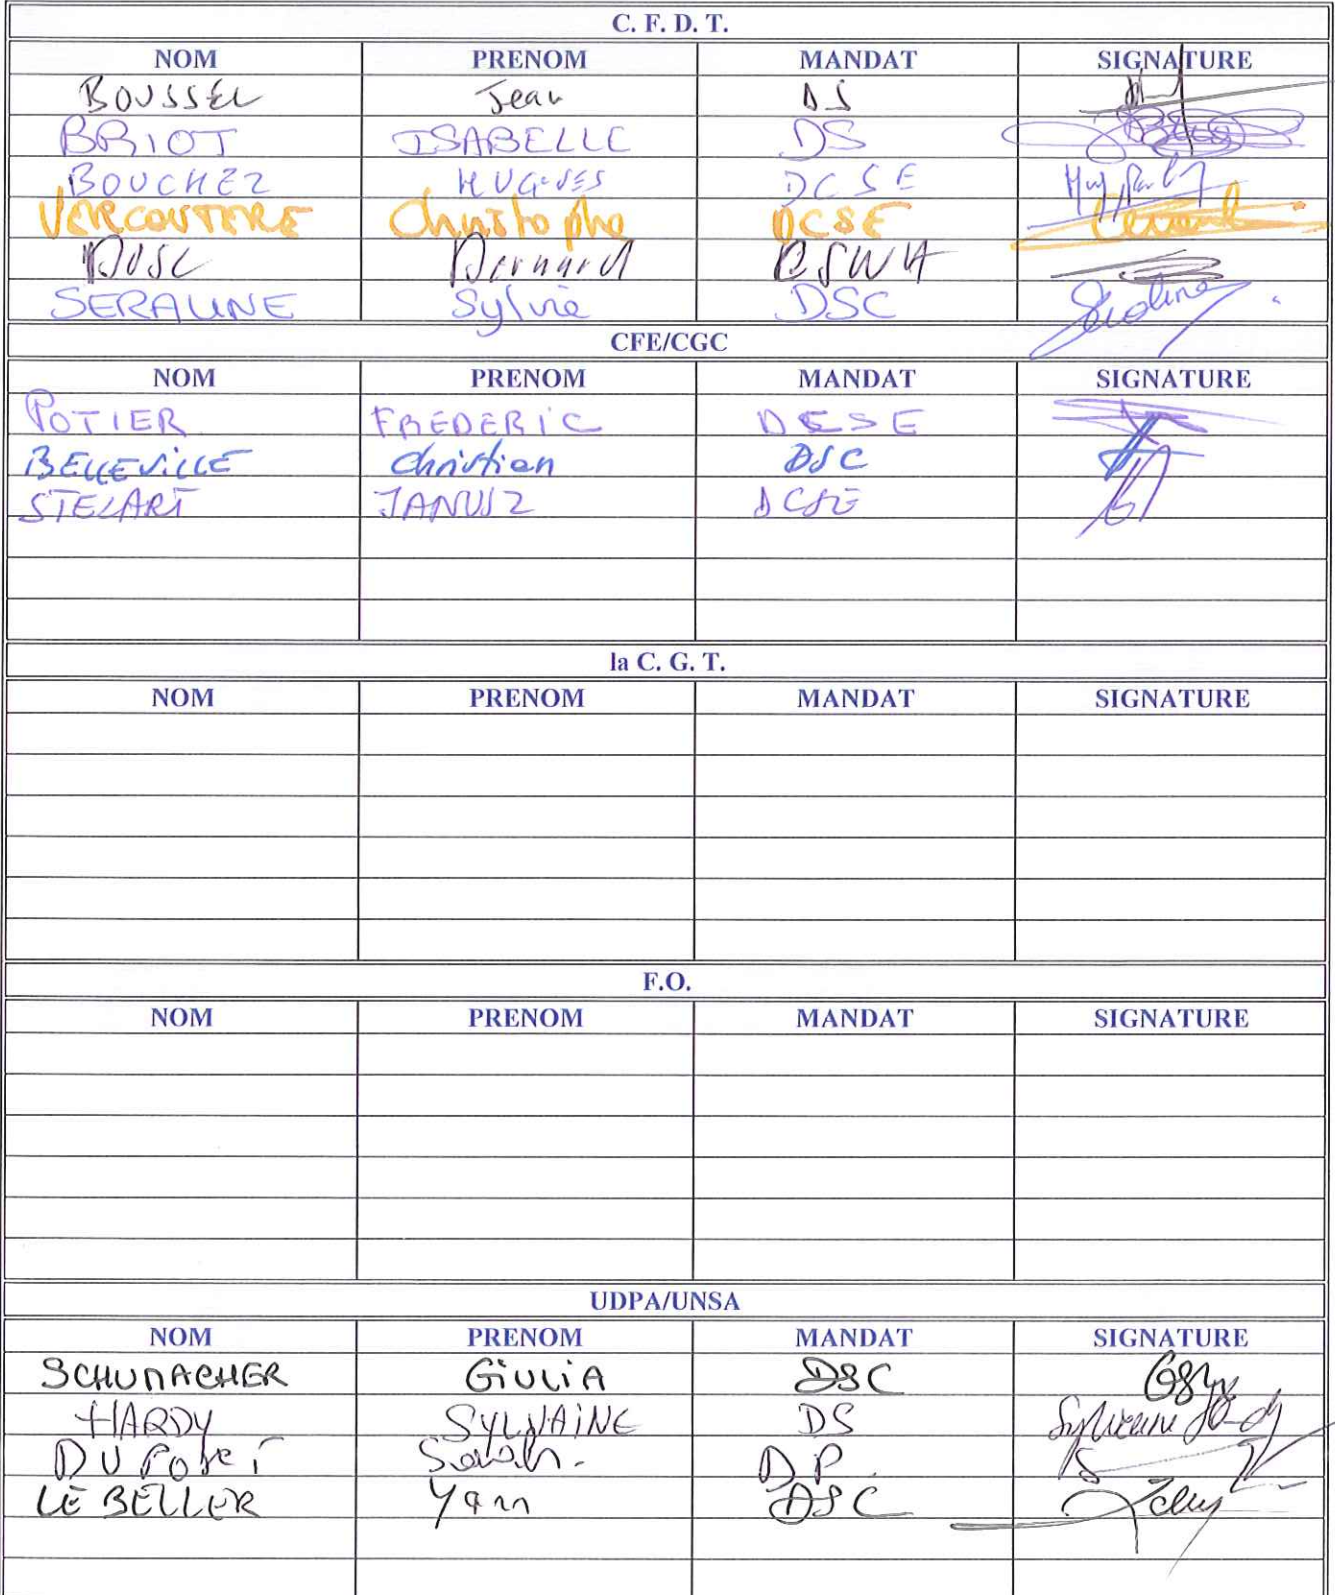 C. F. D. T.
NOM PRENOM MANDAT SIGNATURE
BOUSSEL Jean DS
BRIOT ISABELLE DS
BOUCHEZ HUGUES DCSE
VERCOUTERE Christophe DCSE
Bernard
SERALINE Sylvie DSC
CFE/CGC
NOM PRENOM MANDAT SIGNATURE
POTIER FREDERIC DCSE
BELLEVILLE Christian DSC
STELART JANUSZ DCSE
la C. G. T.
NOM PRENOM MANDAT SIGNATURE
F.O.
NOM PRENOM MANDAT SIGNATURE
UDPA/UNSA
NOM PRENOM MANDAT SIGNATURE
SCHUMACHER GiULiA DSC
HARDY SYLVAINE DS
Sarah. DP.
LE BELLER Yann DSC